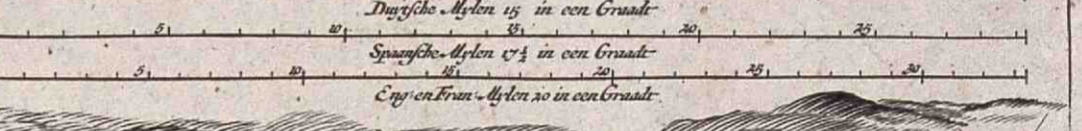 Duytsche Mylen 15 in een Graadt
5 10 15 20 25
Spaansche Mylen 17½ in een Graadt
5 10 15 20 25 30
Eng: en Fran: Mylen 20 in een Graadt